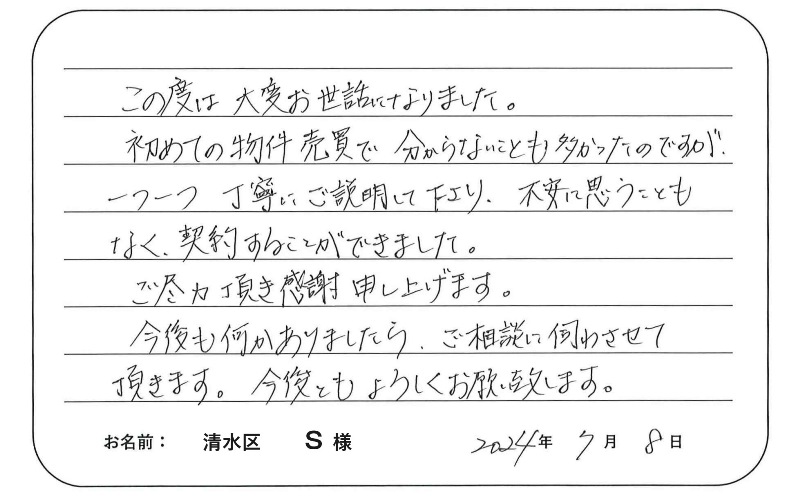 この度は 大変お世話になりました。
初めての物件売買で 分からないことも多かったのですが、
一つ一つ 丁寧に ご説明して下さり、不安に思うことも
なく、契約することができました。
ご尽力頂き感謝申し上げます。
今後も何かありましたら、ご相談に伺わさせて
頂きます。今後ともよろしくお願い致します。
お名前： 清水区 S 様 2024年 7月 8日